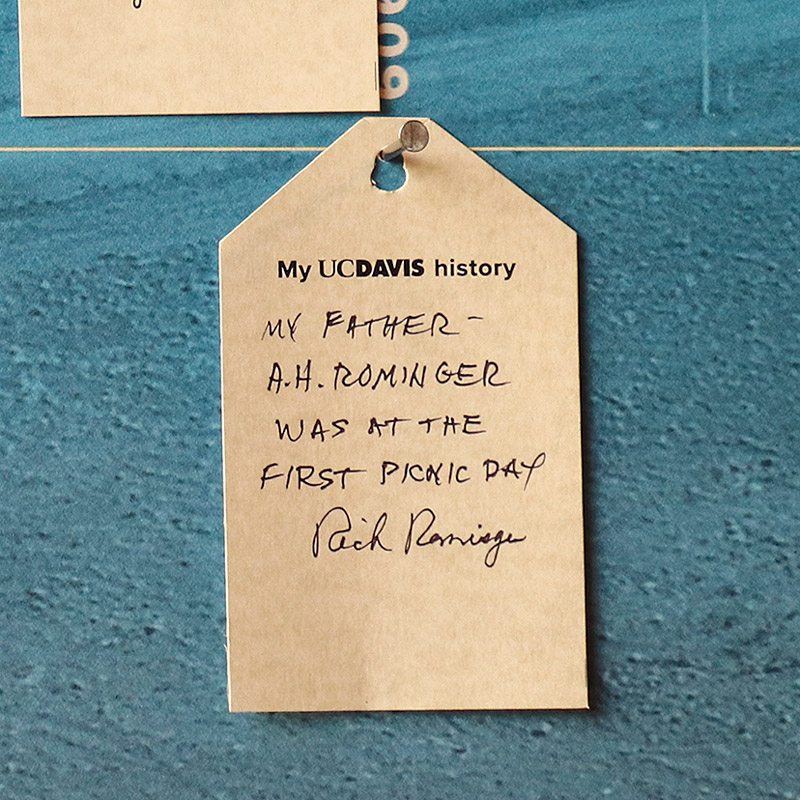 909
My UCDAVIS history
MY FATHER -
A.H. ROMINGER
WAS AT THE
FIRST PICNIC DAY
Rich Rominger